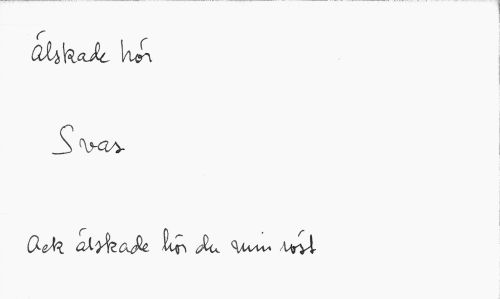 álskade hór
Svas
Ack álskade hór du min róst